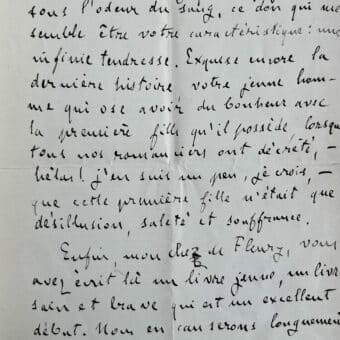 sous l'odeur du sang, ce don qui me
semble être votre caractéristique : une
infinie tendresse. Exquise encore la
dernière histoire, votre jeune hom-
me qui ose avoir du bonheur avec
la première fille qu'il possède, lorsque
tous nos romanciers ont décrété, –
hélas! j'en suis un peu, je crois, –
que cette première fille n'était que
désillusion, saleté et souffrance.
Enfin, mon cher de Fleury, vous
avez écrit là un livre jeune, un livre
sain et brave qui est un excellent
début. Nous en causerons longuement